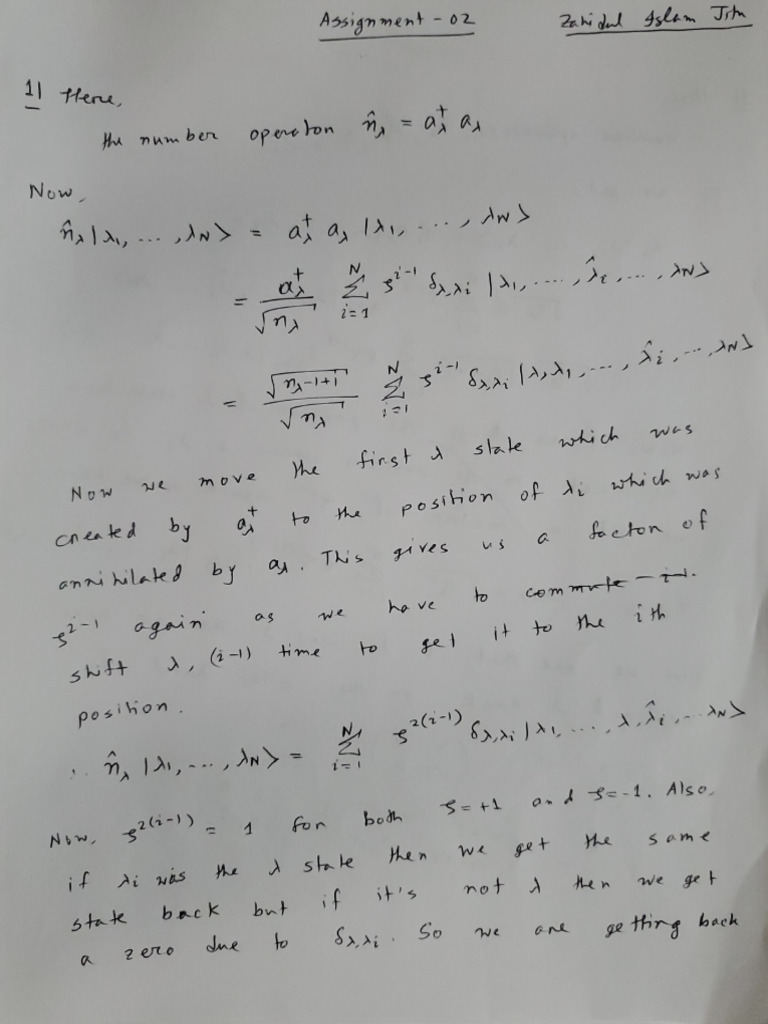 Assignment - 02
Zahidul Islam Jitu
1| Here,
the number operator n̂_λ = a_λ^† a_λ
Now,
n̂_λ |λ_1, ... , λ_N> = a_λ^† a_λ |λ_1, ... , λ_N>
= a_λ^† / √n_λ ∑_{i=1}^{N} ζ^{i-1} δ_{λ,λ_i} |λ_1, ... , λ̂_i, ... , λ_N>
= √(n_λ-1+1) / √n_λ ∑_{i=1}^{N} ζ^{i-1} δ_{λ,λ_i} |λ, λ_1, ... , λ̂_i, ... , λ_N>
Now we move the first λ state which was
created by a_λ^† to the position of λ_i which was
annihilated by a_λ. This gives us a factor of
ζ^{i-1} again as we have to commute
shift λ, (i-1) time to get it to the ith
position.
∴ n̂_λ |λ_1, ... , λ_N> = ∑_{i=1}^{N} ζ^{2(i-1)} δ_{λ,λ_i} |λ_1, ... , λ, λ̂_i, ... λ_N>
Now, ζ^{2(i-1)} = 1 for both ζ=+1 and ζ=-1. Also,
if λ_i was the λ state then we get the same
state back but if it's not λ then we get
a zero due to δ_{λ,λ_i}. So we are getting back